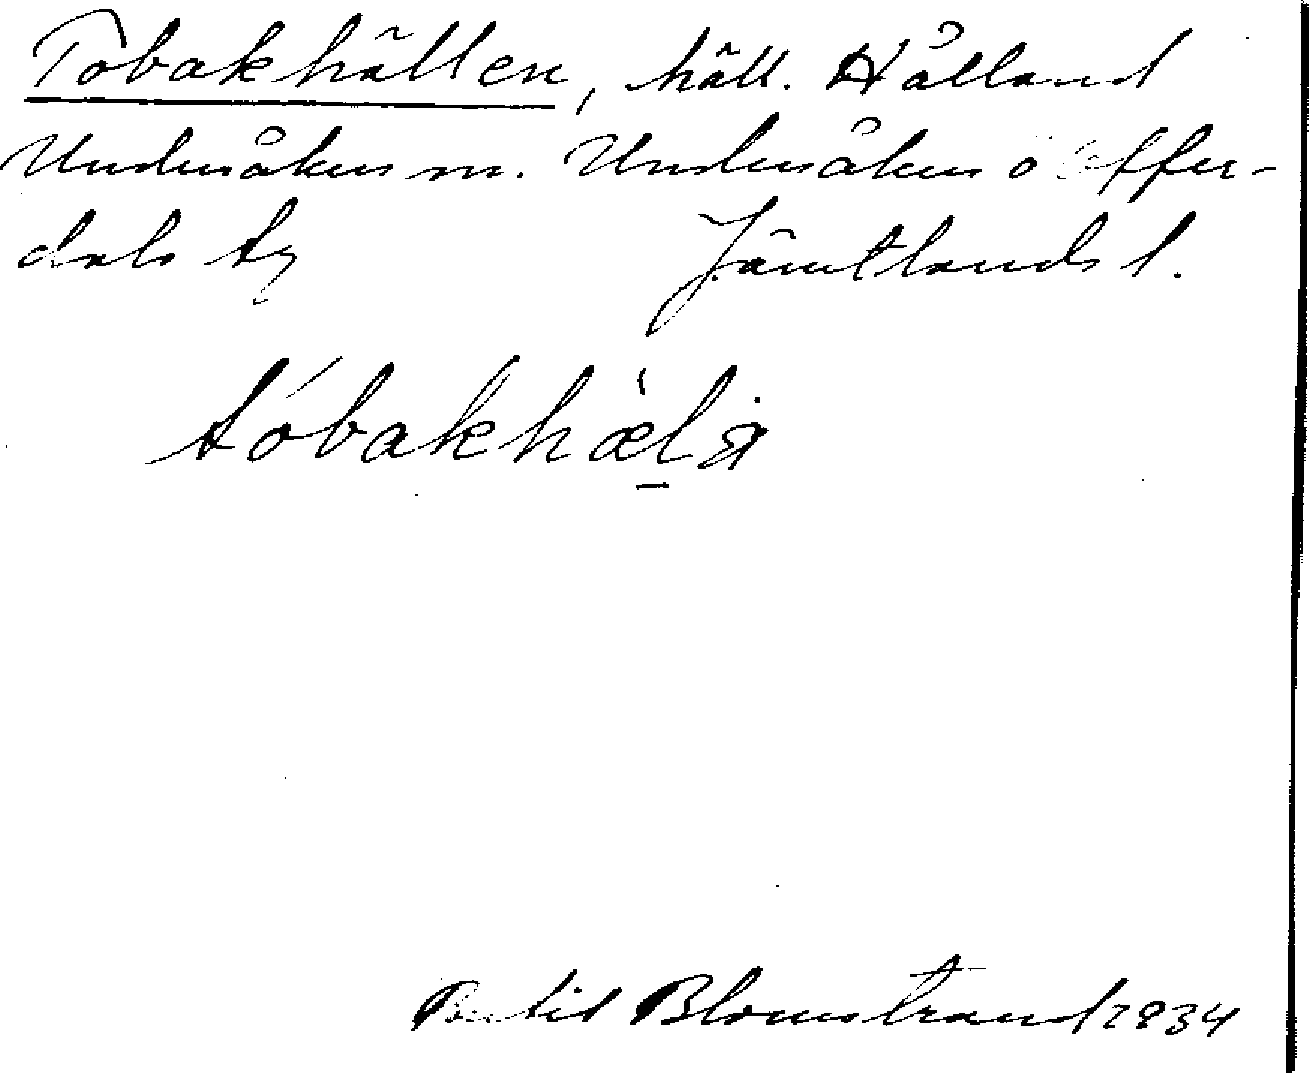 Tobakhällen, häll. Hålland
Undersåkers sn. Undersåkers o Offer-
dals tg Jämtlands l.
tóbakhæl
Bertil Blomstrand 1934